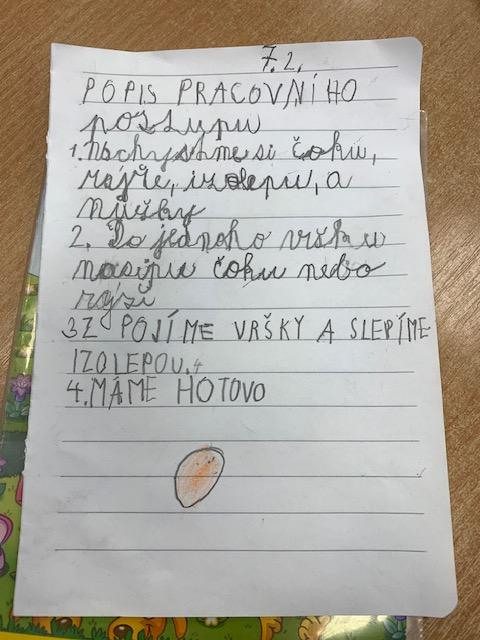 7.2.
POPIS PRACOVNÍHO
postupu
1. Nachystme si čoku,
rajře, izolepu, a
nůžky
2. Do jednoho vršku
nasipu čoku nebo
rýsi
3Z POJÍME VRŠKY A SLEPÍME
IZOLEPOU.4
4. MÁME HOTOVO